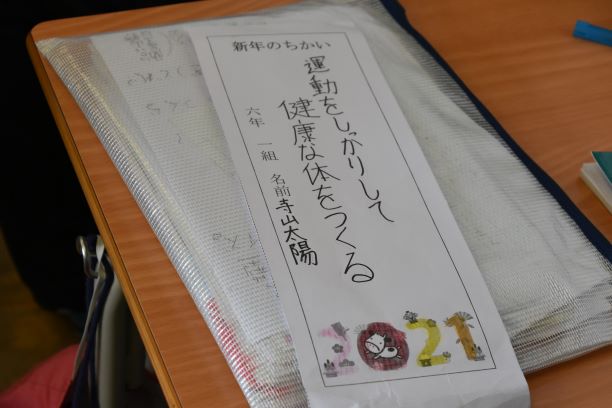 新年のちかい
運動をしっかりして
健康な体をつくる
六年 一組 名前 寺山太陽
2021